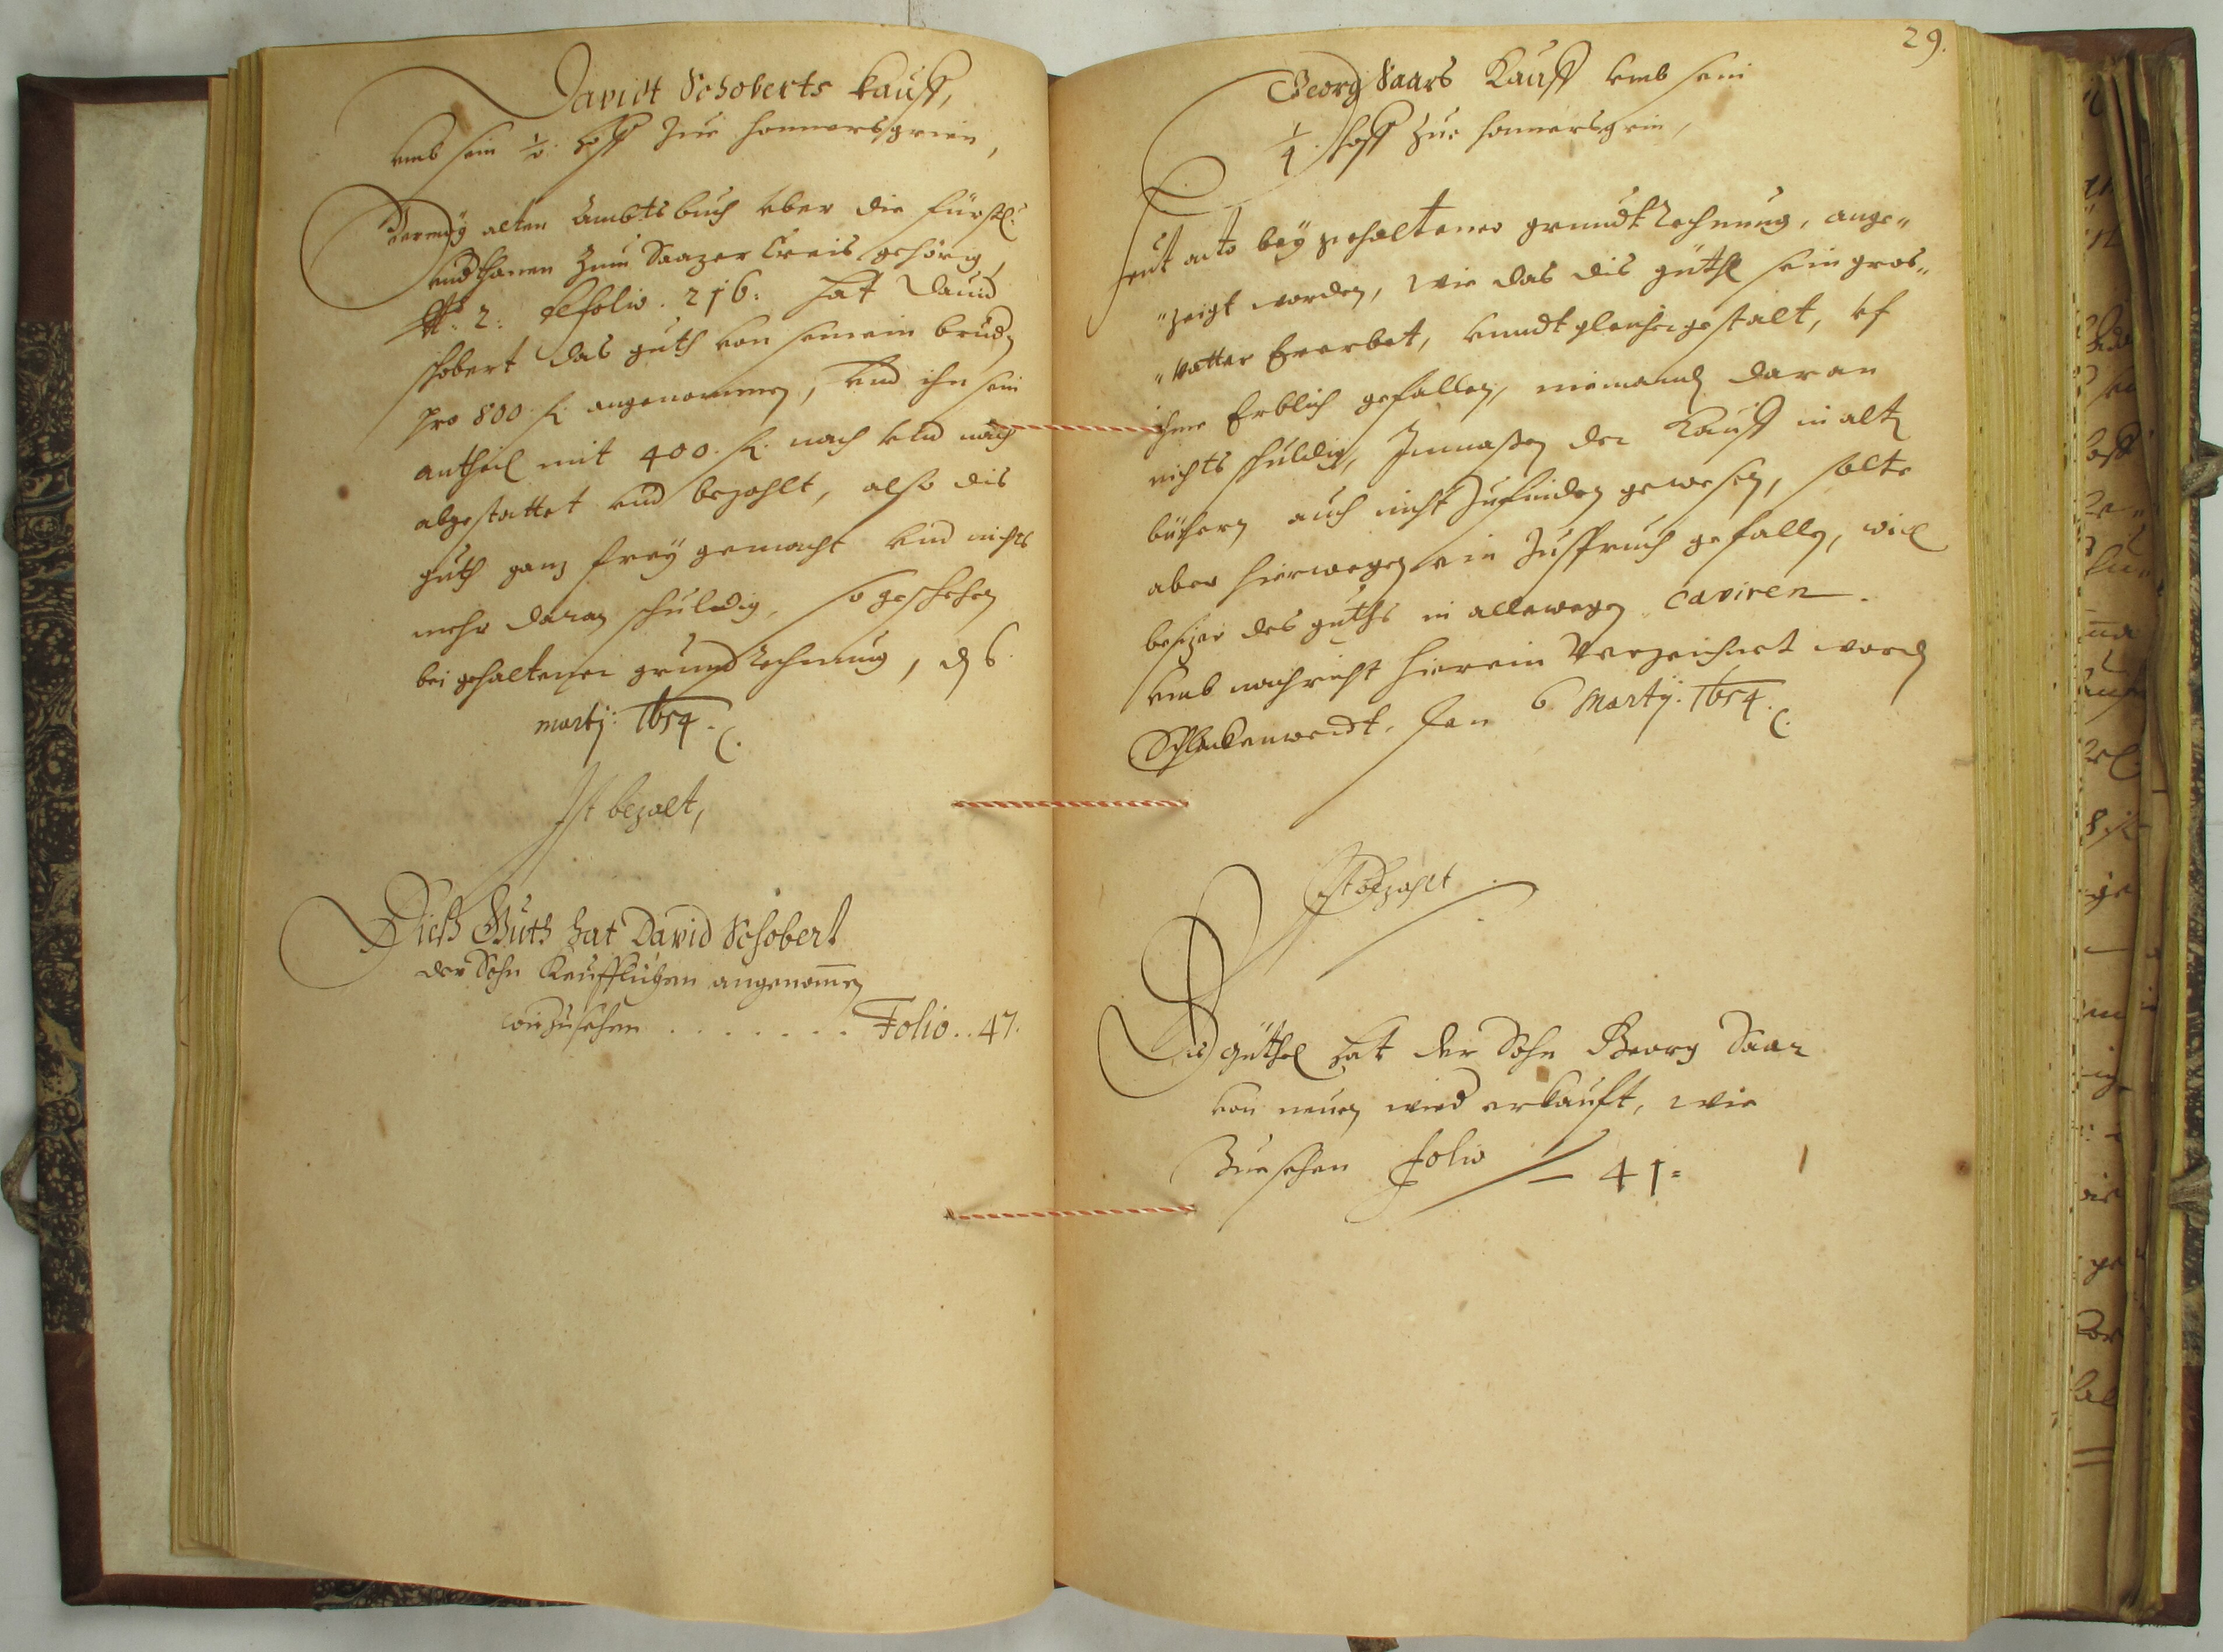 Davidt Schoberts kauff,
umb sein ½ Hoff zue Honnersgrien,
Vermög alten Ambtsbuch über die fürstl:
undthanen zum Saazer Creis gehörig,
N: 2: folio. 216: hat David
schobert das guth von seinem brud
pro 800 f. angenommen, und ihn sein
antheil mit 400. f. nach und nach
abgestattet und bezahlt, also dis
guth ganz frey gemacht und nichts
mehr daran schuldig, so geschehen
bei gehaltener grundrechnung, d 6
martij: 1654.
Ist bezalt,
Dieß Guth hat David Schobert
der Sohn Keufflichen angenom̄en
wie zusehen . . . . . . . Folio . . 47.
29.
Georg Saars Kauff umb sein
¼ Hoff zue Honnersgrin,
Heut dato bey gehaltener grundtrechnung, ange„
„zeigt worden, wie das dis güthl sein gros„
„vatter Ererbet, unndt gleichergestalt, uf
ihme Erblich gefallen, niemand daran
nichts schuldig, Inmaßen der Kauff in alt
büchern auch nicht zufinden gewesen, solte
aber hierwegen ein Zuspruch gefallen, will
besizer des guths in allewegen caviren.
umb nachricht hierein Verzeichnet word
Schlackenwerdt, den 6 Martij: 1654.
Ist bezahlt.
Dis güthel hat der Sohn Georg Saar
von neuen wied erkauft, wie
Zuesehen folio 41: